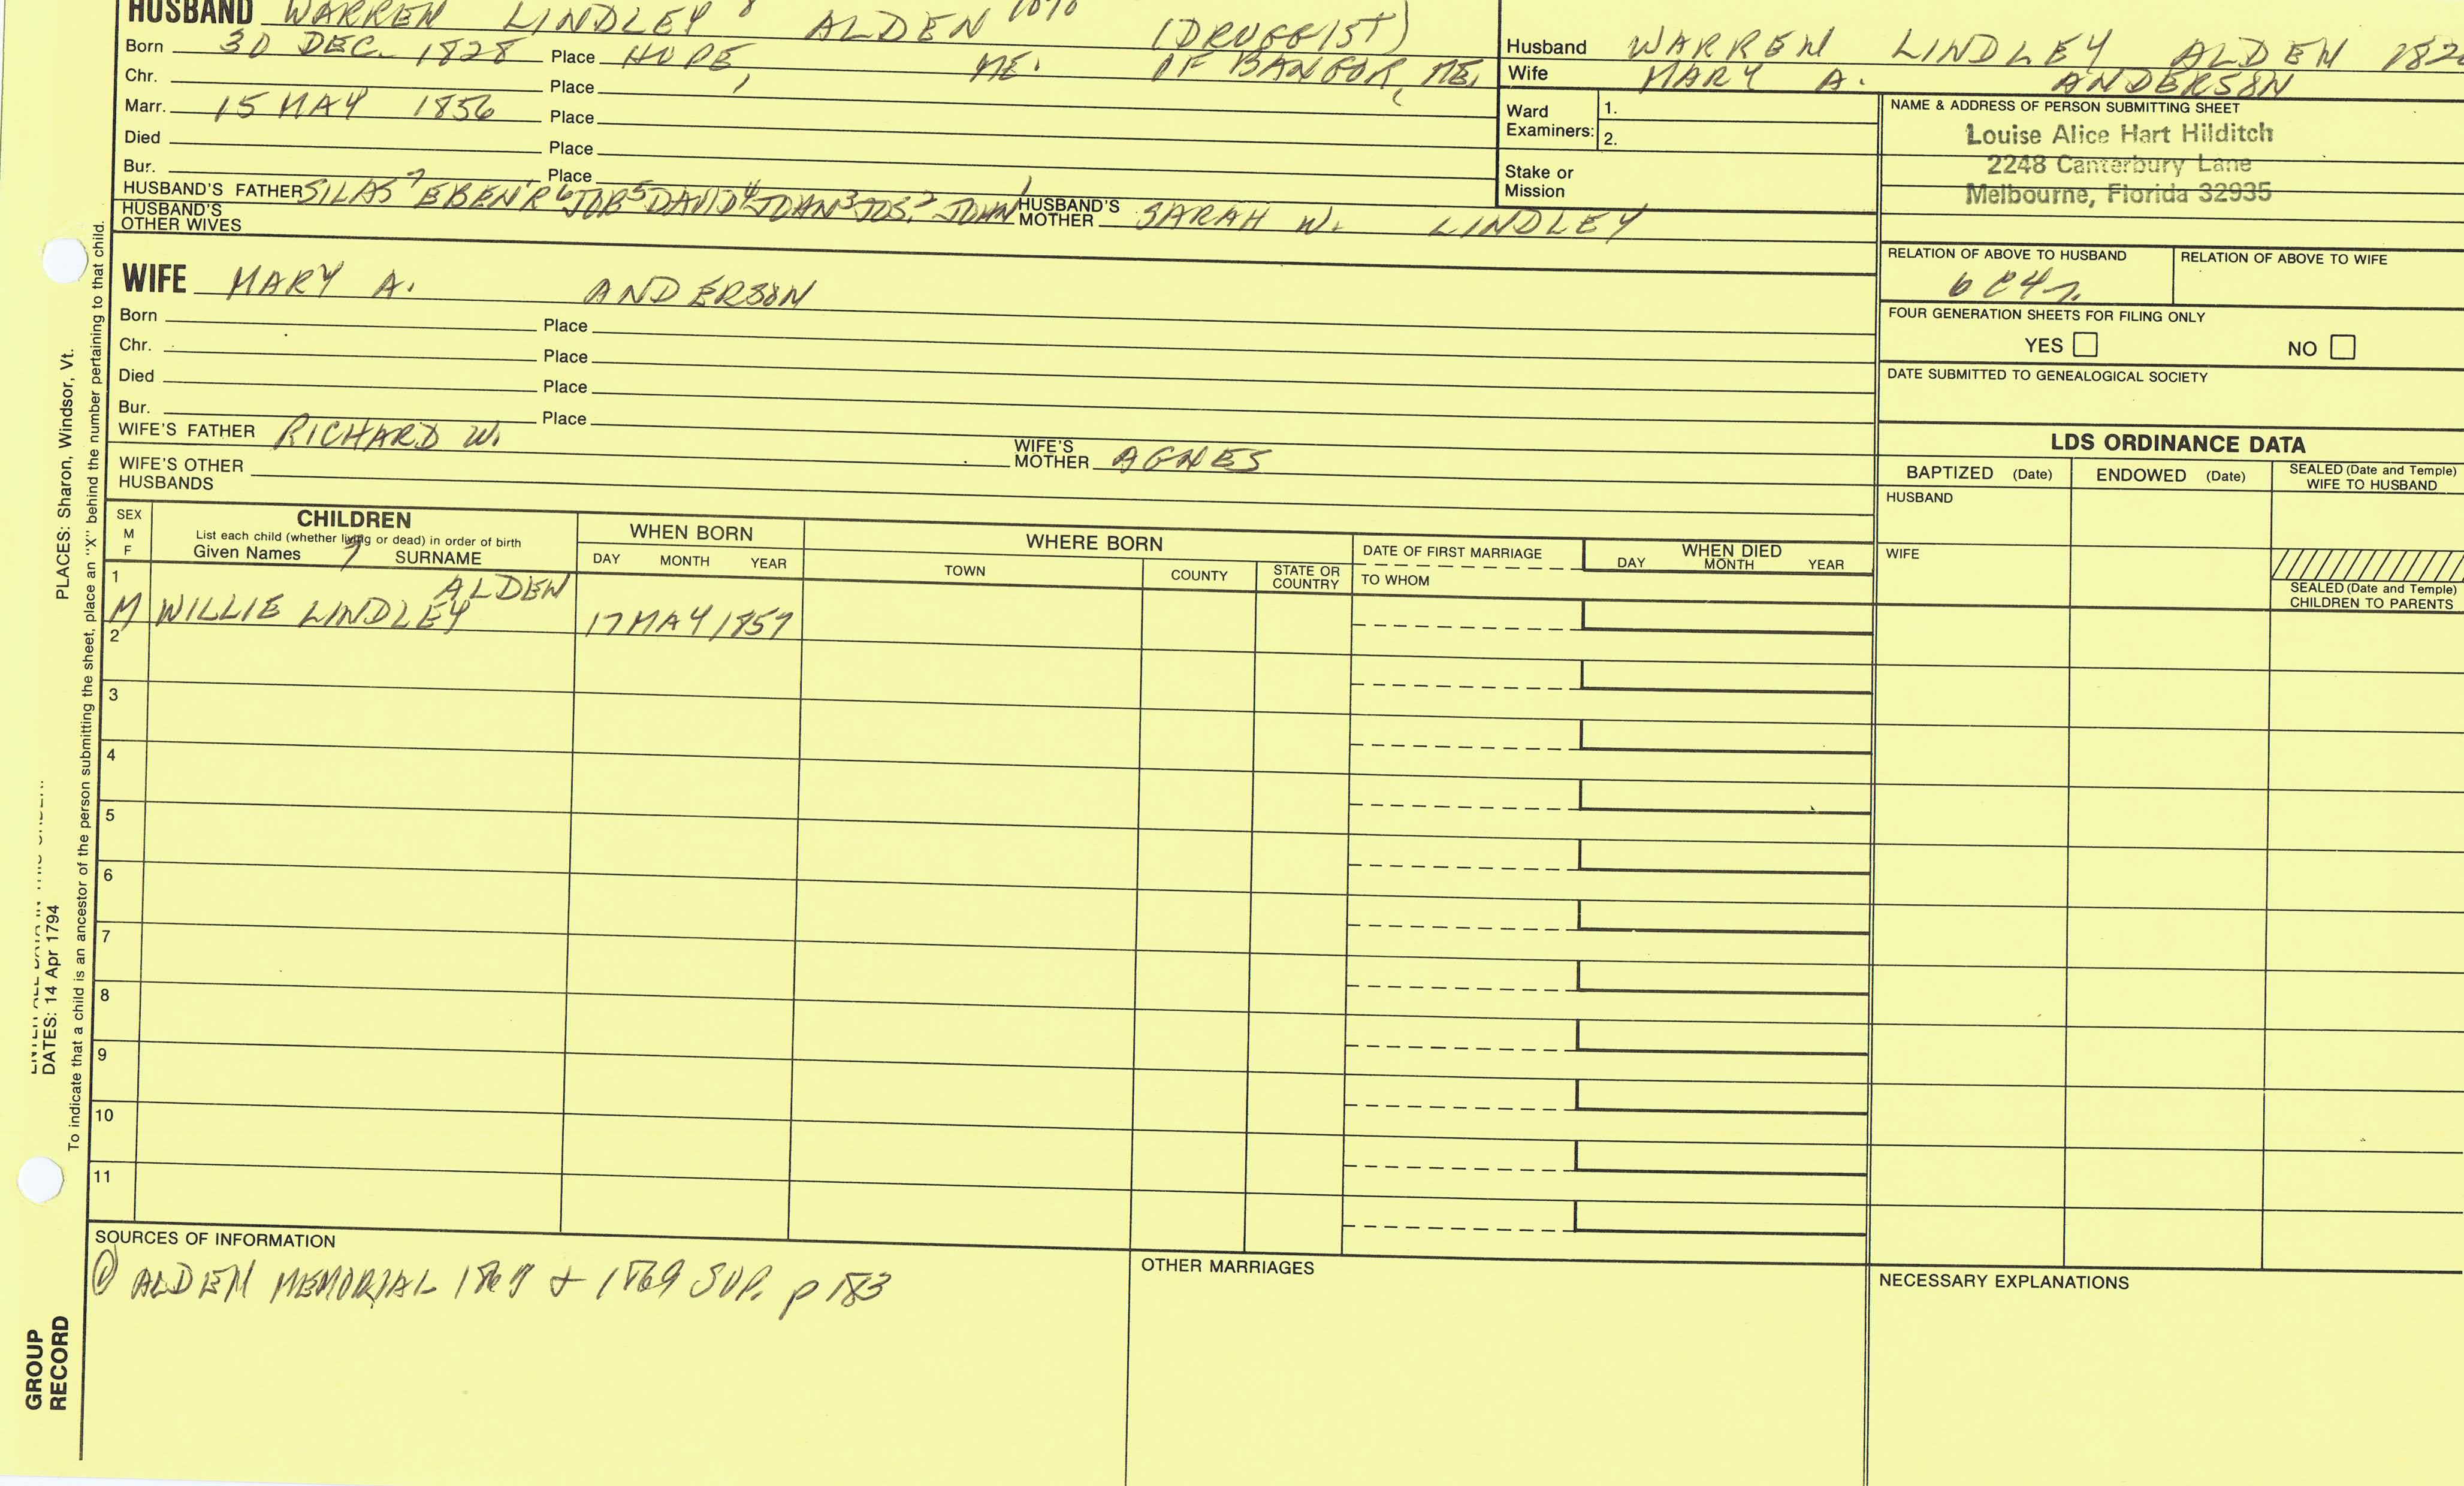 HUSBAND WARREN LINDLEY 8 ALDEN (DRUGGIST)
Born 30 DEC. 1828 Place HOPE, ME. OF BANGOR, ME.
Chr. Place
Marr. 15 MAY 1856 Place
Died Place
Bur. Place
HUSBAND'S FATHER SILAS 7 EBEN'R 6 JOB 5 DAVID 4 JOHN 3 JOS. 2 JOHN 1 HUSBAND'S MOTHER SARAH W. LINDLEY
HUSBAND'S OTHER WIVES
Husband WARREN LINDLEY ALDEN
Wife MARY A. ANDERSON
Ward Examiners: 1.
2.
Stake or Mission
NAME & ADDRESS OF PERSON SUBMITTING SHEET
Louise Alice Hart Hilditch
2248 Canterbury Lane
Melbourne, Florida 32935
RELATION OF ABOVE TO HUSBAND
6C4r.
RELATION OF ABOVE TO WIFE
FOUR GENERATION SHEETS FOR FILING ONLY
YES NO
DATE SUBMITTED TO GENEALOGICAL SOCIETY
WIFE MARY A. ANDERSON
Born Place
Chr. Place
Died Place
Bur. Place
WIFE'S FATHER RICHARD W. WIFE'S MOTHER AGNES
WIFE'S OTHER HUSBANDS
LDS ORDINANCE DATA
BAPTIZED (Date) ENDOWED (Date) SEALED (Date and Temple) WIFE TO HUSBAND
HUSBAND
WIFE
SEALED (Date and Temple) CHILDREN TO PARENTS
SEX M F
CHILDREN
List each child (whether living or dead) in order of birth
Given Names SURNAME
WHEN BORN
DAY MONTH YEAR
WHERE BORN
TOWN COUNTY STATE OR COUNTRY
DATE OF FIRST MARRIAGE
TO WHOM
WHEN DIED
DAY MONTH YEAR
1 ALDEN
M WILLIE LINDLEY 17 MAY 1857
2
3
4
5
6
7
8
9
10
11
SOURCES OF INFORMATION
① ALDEN MEMORIAL 1867 & 1869 SUP. p 183
OTHER MARRIAGES
NECESSARY EXPLANATIONS
PLACES: Sharon, Windsor, Vt.
DATES: 14 Apr 1794
To indicate that a child is an ancestor of the person submitting the sheet, place an "X" behind the number pertaining to that child.
GROUP
RECORD